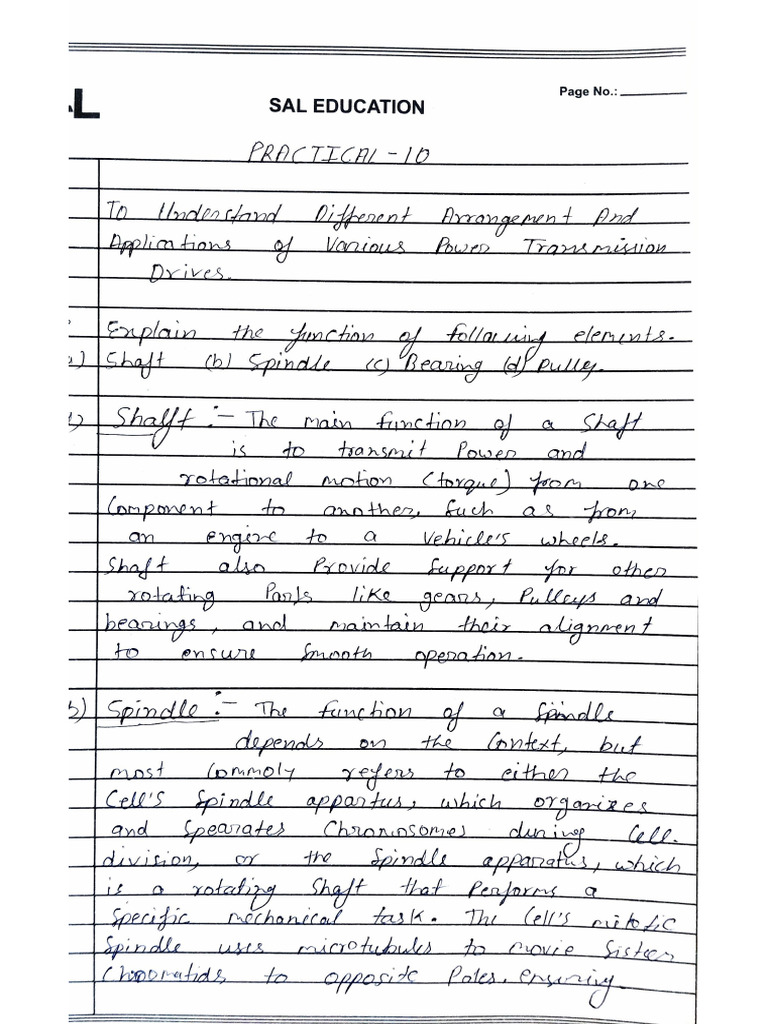 AL
SAL EDUCATION
Page No.:
PRACTICAL-10
To Understand Different Arrangement And
Applications of Various Power Transmission
Drives.
Explain the function of following elements.
a) Shaft (b) Spindle (c) Bearing (d) Pully.
Shafft :- The main function of a Shaft
is to transmit Power and
rotational motion (torque) from one
Component to another, Such as from
an engine to a vehicle's wheels.
Shaft also Provide Support for other
rotating Parts like gears, Pulleys and
bearings, and maintain their alignment
to ensure smooth operation.
b) Spindle :- The function of a Spindle
depends on the Context, but
most Commoly refers to either the
Cell's Spindle appartus, which organizes
and Spearates Chromosomes during Cell
division, or the Spindle apparatus, which
is a rotating Shaft that Performs a
Specific mechanical task. The Cell's mitotic
Spindle uses microtubules to movie Sister
Chromatids to opposite Poles, ensuring